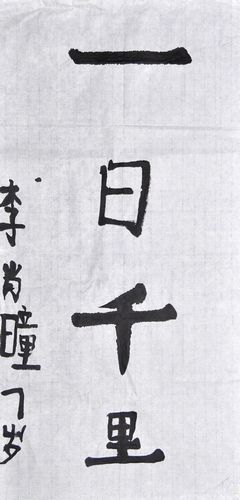 一日千里
李肖曈7岁